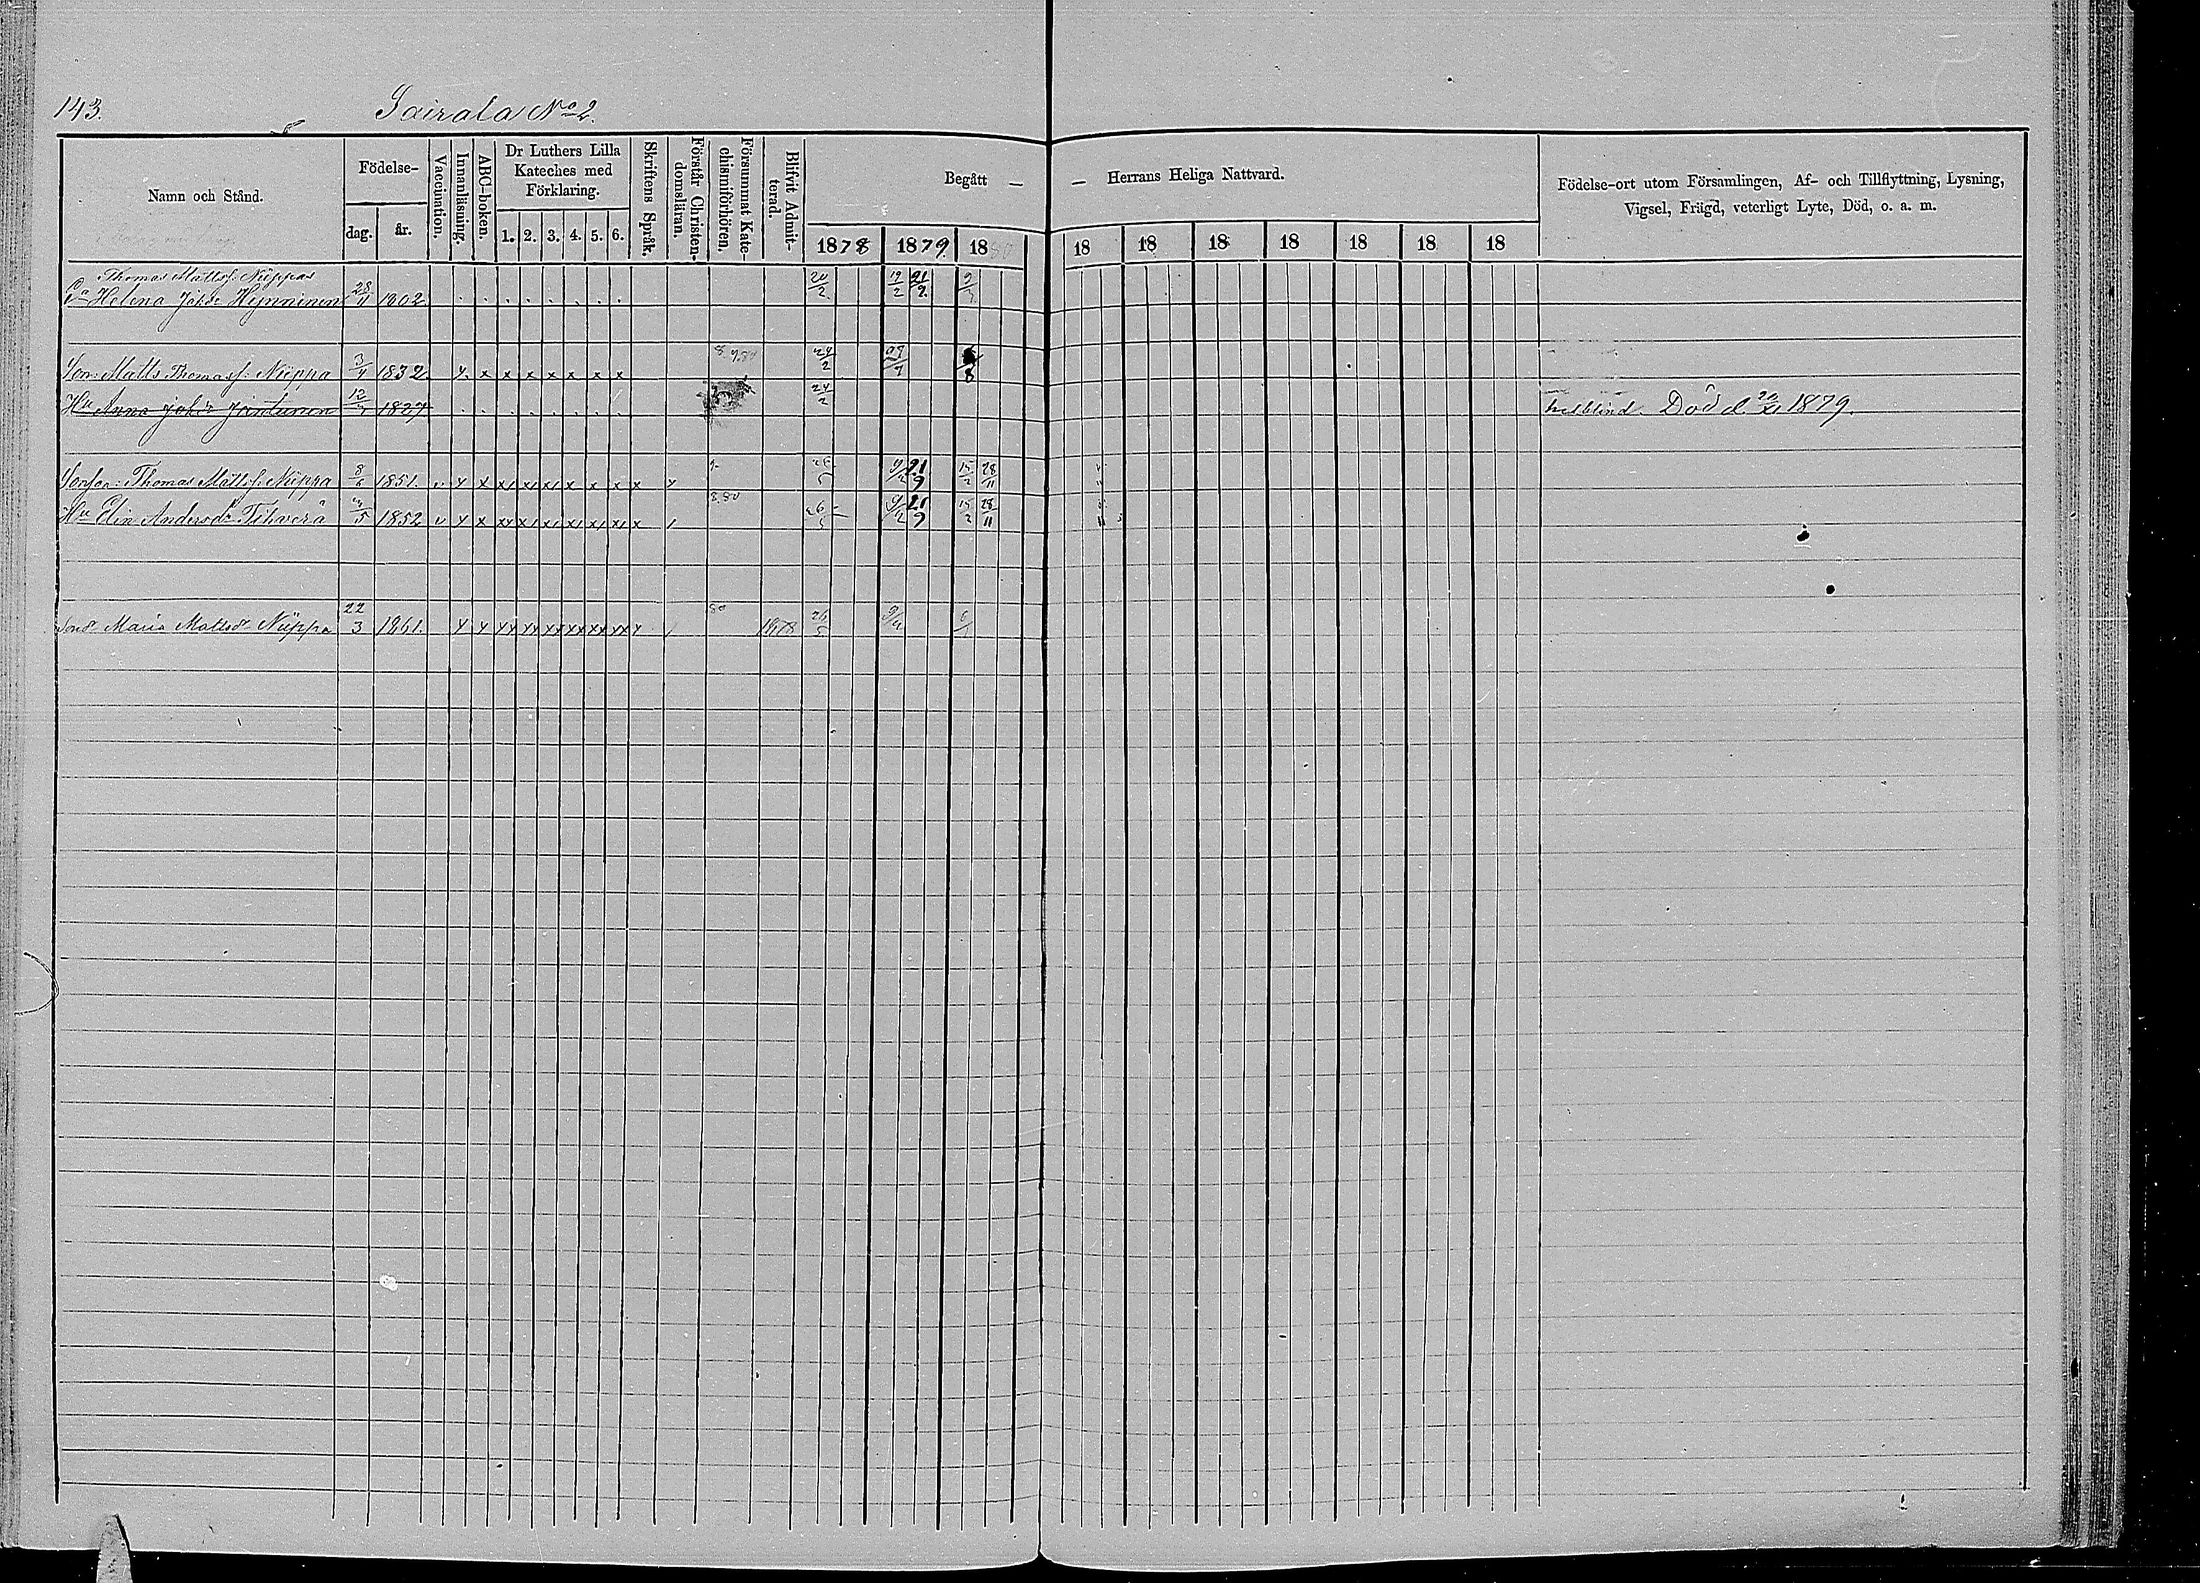 143.
Sairala No 2.
Namn och Stånd.
Födelse-
dag.
år.
Vaccination.
Innanläsning.
ABC-boken.
Dr Luthers Lilla
Kateches med
Förklaring.
1. 2. 3. 4. 5. 6.
Skriftens Språk.
Förstår Christen-
domsläran.
Försummat Kate-
chismiförhören.
Blifvit Admit-
terad.
Begått —
— Herrans Heliga Nattvard.
1878 1879. 1880
18 18 18 18 18 18 18
Födelse-ort utom Församlingen, Af- och Tillflyttning, Lysning,
Vigsel, Frägd, veterligt Lyte, Död, o. a. m.
Thomas Mattss. Nieppas
Helena Johsdr Hynninen 28/11 1802 20/2 19/2 21/9
Son: Matts Thomass. Nieppa 3/11 1832. x x x x x x x x 24/2
Hu Anna Johdr Jantunen 1827 24/2 helblind. Död d. 20/XI 1879.
Sonson: Thomas Mattss. Nieppa 8/6 1851. v x x x x x x x x x x 9/2 21/9 15/2 28/11
Hu Elin Andersdr Tihverä 1852 v x x xx x x x x x x 26/5 9/2 21/9 15/2 28/11
Sond. Maria Mattsdr Nieppa 22/3 1861. x x xx xx xx xx xx xx x 80 1878 26/5